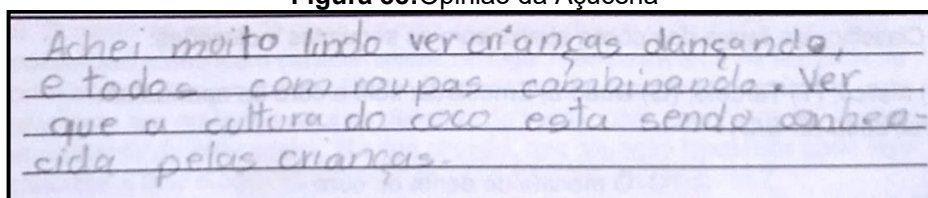 Figura 35:Opinião da Açucena
Achei moito lindo ver crianças dançando,
e todos com roupas combinando. Ver
que a cultura do coco esta sendo conhe-
cida pelas crianças.